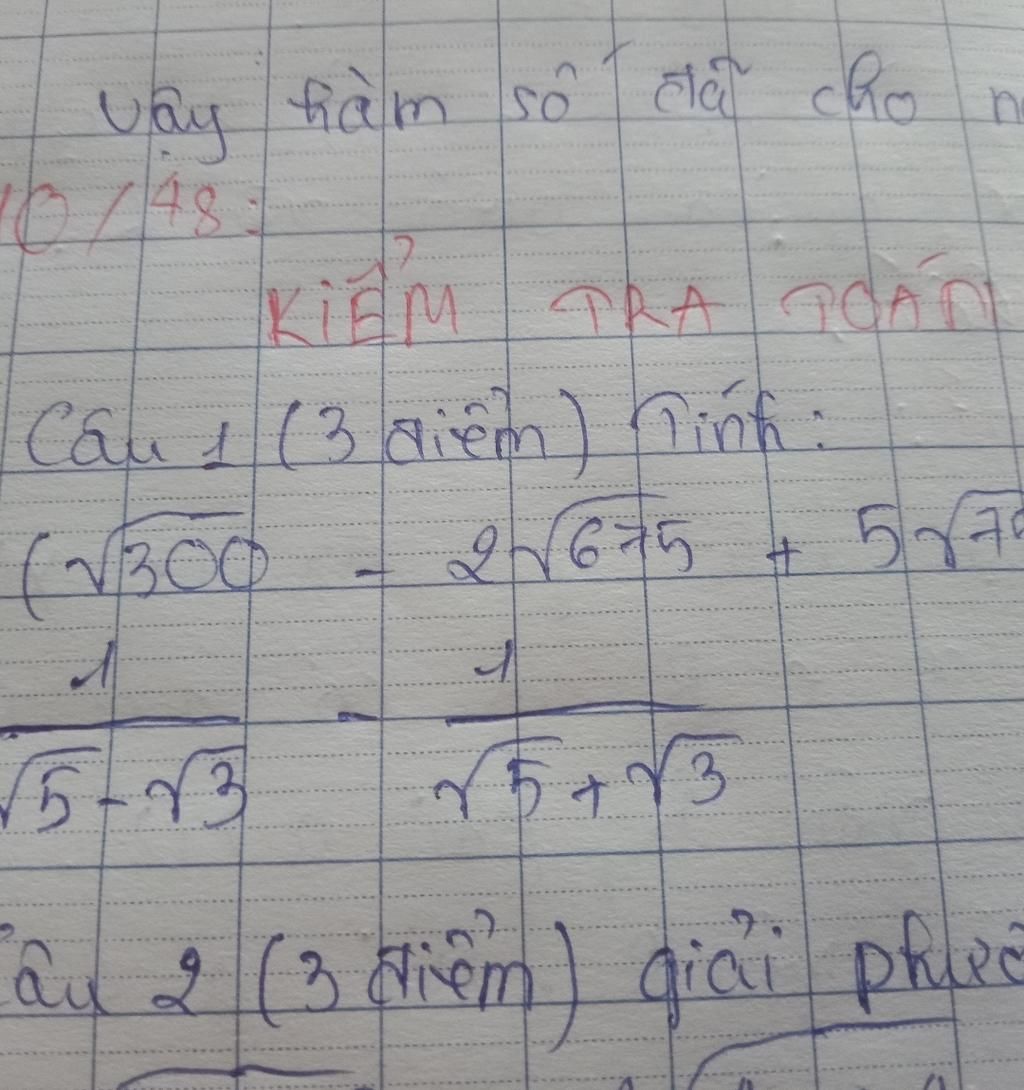 Vậy hàm số đã cho n
10/48:
KIỂM TRA TOÁN
Câu 1 (3 điểm) Tính:
(√300 - 2√675 + 5√7
1/(√5 - √3) - 1/(√5 + √3)
Câu 2 (3 điểm) giải phươ